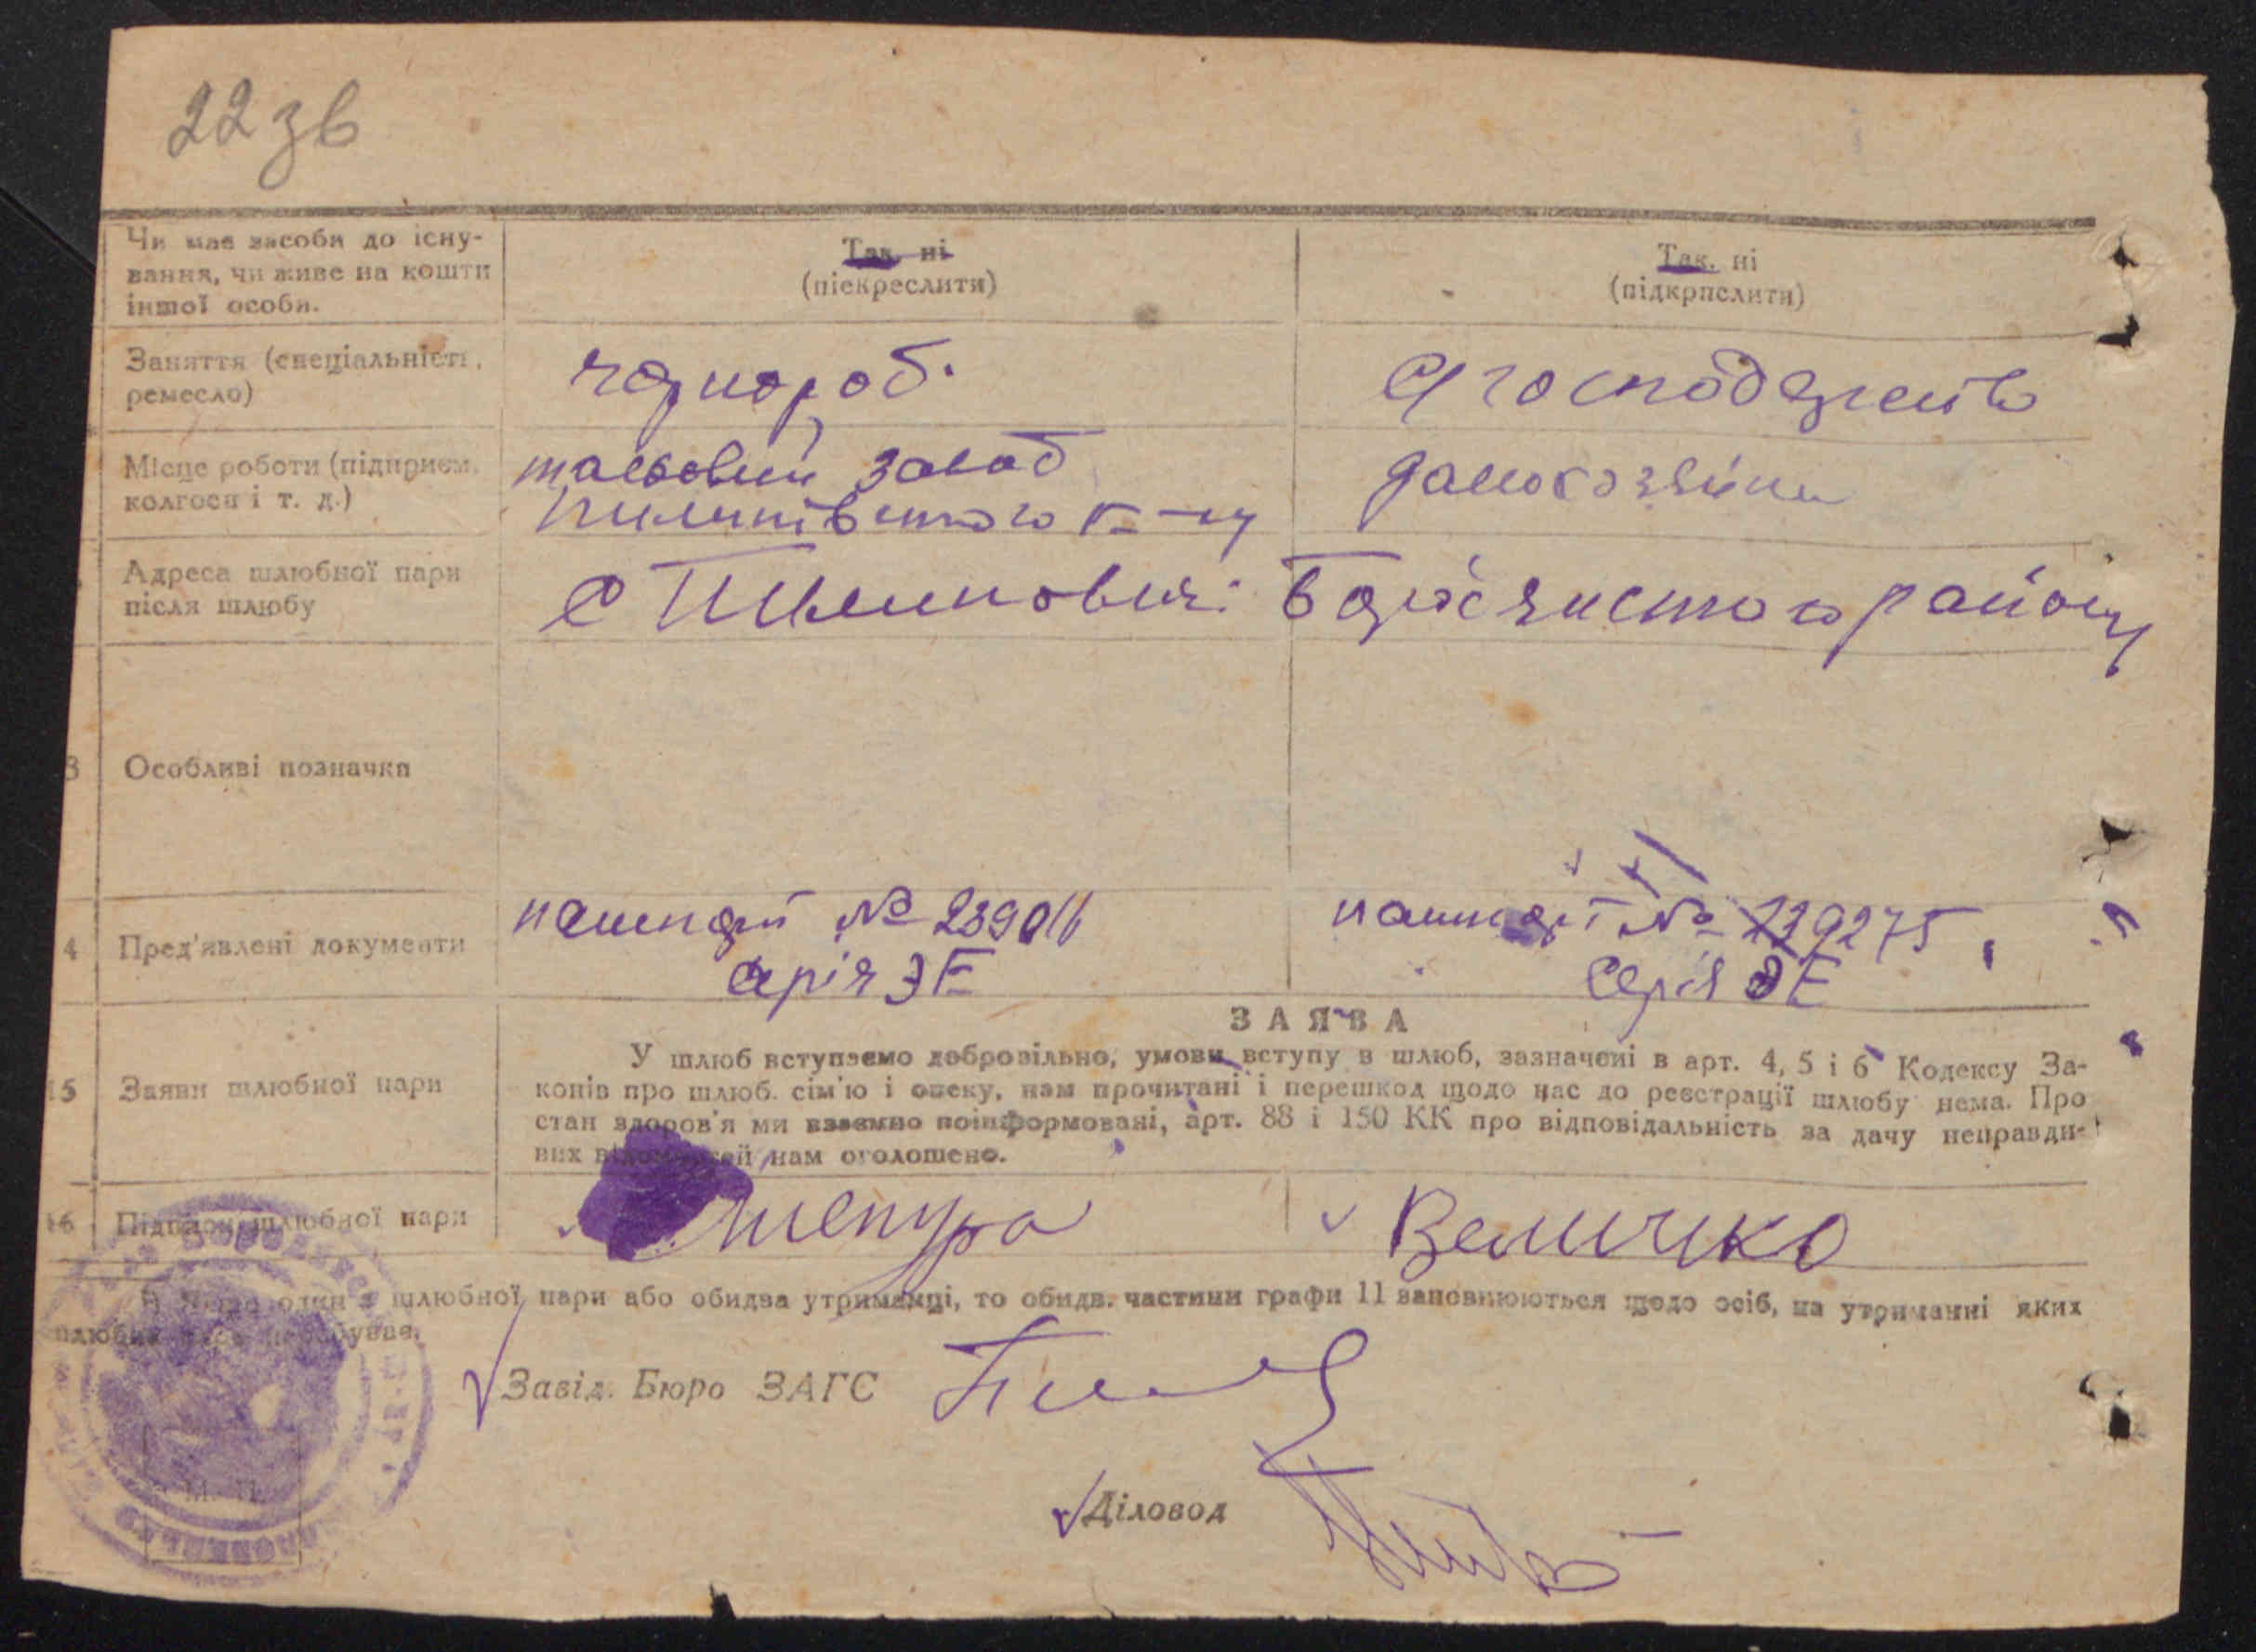 22 зв
Чи має засоби до існу-
вання, чи живе на кошти
іншої особи.
Так. ні
(піекреслити)
Так. ні
(підкрпслити)
Заняття (спеціальність,
ремесло)
чорнороб.
господарств
Місце роботи (підприєм.
колгосп і т. д.)
завод
р-ну
домохозяйки
Адреса шлюбної пари
після шлюбу
с району
3 Особливі позначки
4 Пред'явлені документи
пашпорт № 239016
серія ЭЕ
пашпорт № 229275
Серія ЭЕ
15 Заяви шлюбної пари
ЗАЯВА
У шлюб вступаємо добровільно, умови вступу в шлюб, зазначені в арт. 4, 5 і 6 Кодексу За-
конів про шлюб. сім'ю і опеку, нам прочитані і перешкод щодо нас до реєстрації шлюбу нема. Про
стан здоров'я ми взаємно поінформовані, арт. 88 і 150 КК про відповідальність за дачу неправди-
вих відомостей нам оголошено.
16 Підписи шлюбної пари
Шепура
Величко
один з шлюбної пари або обидва утриманці, то обидв. частини графи 11 заповнюються щодо осіб, на утриманні яких
Завід. Бюро ЗАГС
Діловод
М. П.